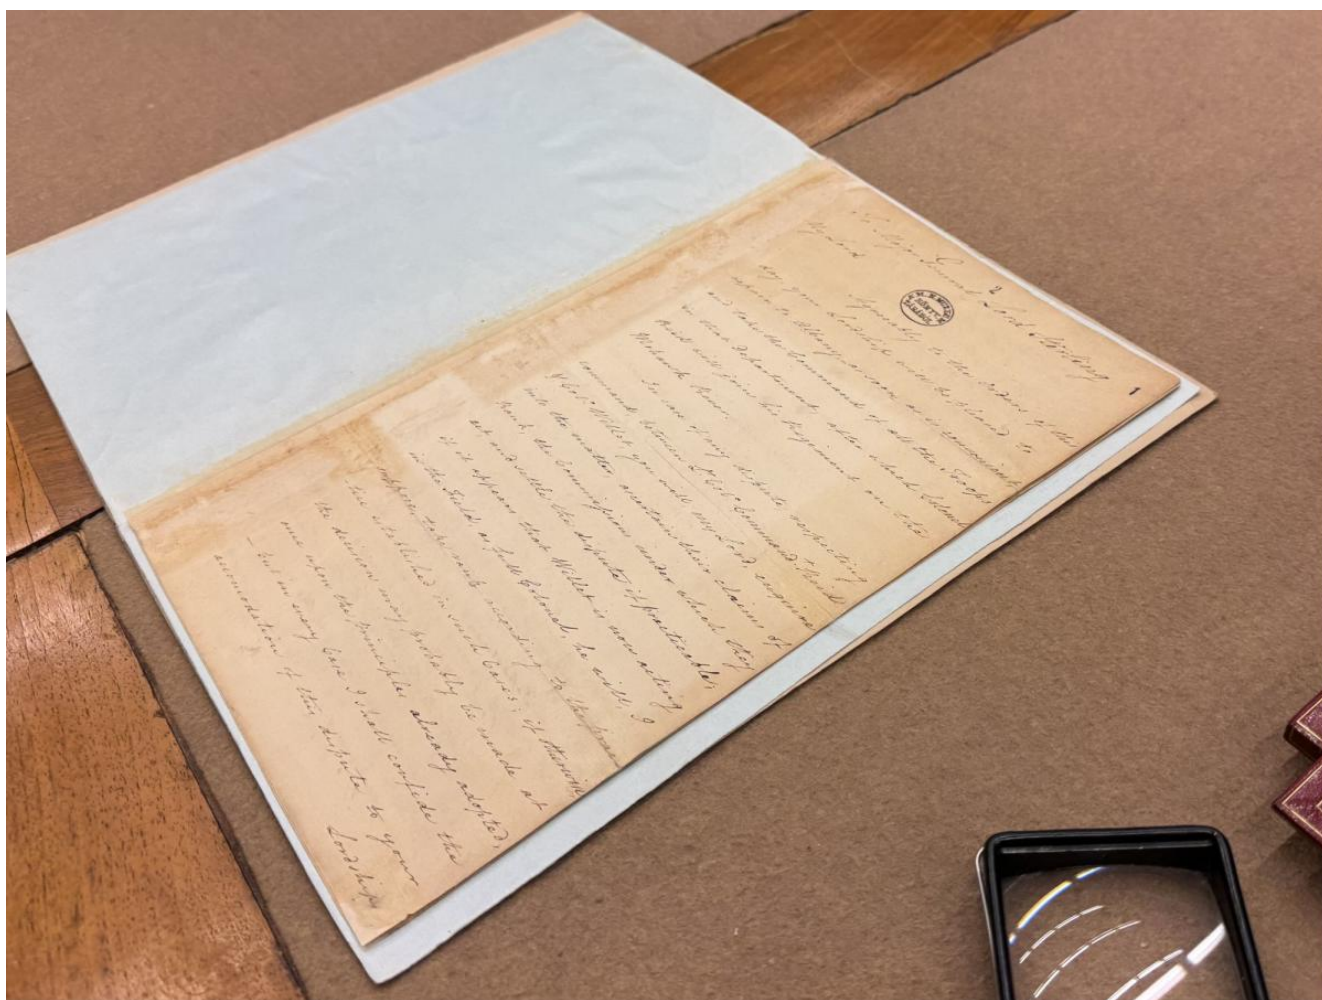 2
1
To Major General Lord Stirling
My Lord
Agreeably to the orders of the
day your Lordship will be pleased to
repair to Albany as soon as convenient
and take the Command of all the Troops
in that Department, after which Colonel
Reid will join his Regiment on the
Mohawk River.
In case of any dispute respecting
command, between Lt Colo Command.t Reid
& Colo Willet, you will my Lord enquire
into the matter, ascertain their claims of
rank, the Commissions under which they
act and settle the dispute if practicable;
if it appears that Willet is now acting
in the Field as full Colonel, he will, I
suppose take rank according to the
established in such Cases; if otherwise,
the decision may probably be made at
once upon the principles already adopted,
— but in every Case I shall confide the
accomodation of this dispute to your
Lordship